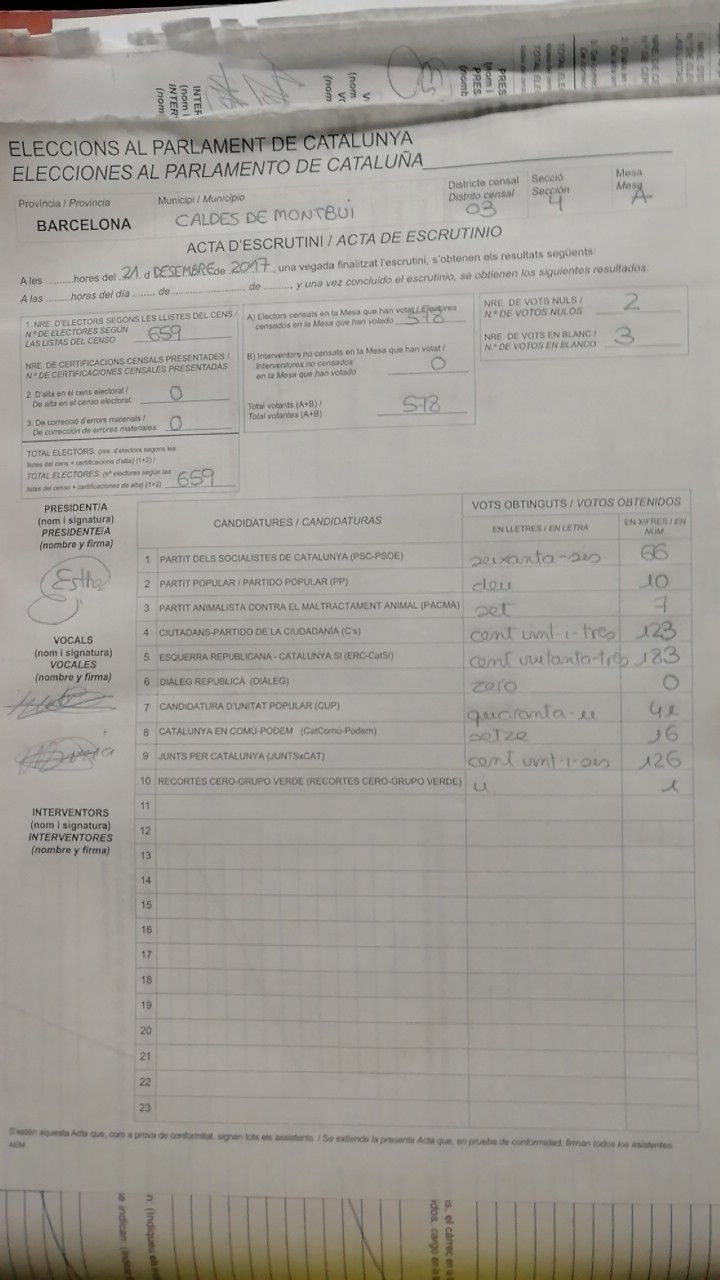 ELECCIONS AL PARLAMENT DE CATALUNYA
ELECCIONES AL PARLAMENTO DE CATALUÑA
Província / Provincia
BARCELONA
Municipi / Municipio
CALDES DE MONTBUI
Districte censal
Distrito censal
03
Secció
Sección
4
Mesa
Mesa
A
ACTA D'ESCRUTINI / ACTA DE ESCRUTINIO
A les ..........hores del .21. d DESEMBRE de 2017, una vegada finalitzat l'escrutini, s'obtenen els resultats següents:
A las ..........horas del día ........ de .......................... de .........., y una vez concluido el escrutinio, se obtienen los siguientes resultados:
1. NRE. D'ELECTORS SEGONS LES LLISTES DEL CENS /
N.º DE ELECTORES SEGÚN
LAS LISTAS DEL CENSO 659
NRE. DE CERTIFICACIONS CENSALS PRESENTADES /
N.º DE CERTIFICACIONES CENSALES PRESENTADAS
2. D'alta en el cens electoral /
De alta en el censo electoral: 0
3. De correcció d'errors materials /
De corrección de errores materiales: 0
TOTAL ELECTORS: (nre. d'electors segons les
llistes del cens + certificacions d'alta) (1+2) /
TOTAL ELECTORES: (nº electores según las
listas del censo + certificaciones de alta) (1+2) 659
A) Electors censats en la Mesa que han votat / Electores
censados en la Mesa que han votado 578
B) Interventors no censats en la Mesa que han votat /
Interventores no censados
en la Mesa que han votado 0
Total votants (A+B) /
Total votantes (A+B) 578
NRE. DE VOTS NULS /
N.º DE VOTOS NULOS 2
NRE. DE VOTS EN BLANC /
N.º DE VOTOS EN BLANCO 3
PRESIDENT/A
(nom i signatura)
PRESIDENTE/A
(nombre y firma)
VOCALS
(nom i signatura)
VOCALES
(nombre y firma)
INTERVENTORS
(nom i signatura)
INTERVENTORES
(nombre y firma)
CANDIDATURES / CANDIDATURAS
VOTS OBTINGUTS / VOTOS OBTENIDOS
EN LLETRES / EN LETRA
EN XIFRES / EN NÚM
1 PARTIT DELS SOCIALISTES DE CATALUNYA (PSC-PSOE) seixanta-sis 66
2 PARTIT POPULAR / PARTIDO POPULAR (PP) deu 10
3 PARTIT ANIMALISTA CONTRA EL MALTRACTAMENT ANIMAL (PACMA) set 7
4 CIUTADANS-PARTIDO DE LA CIUDADANÍA (C's) cent vint-i-tres 123
5 ESQUERRA REPUBLICANA - CATALUNYA SÍ (ERC-CatSí) cent vuitanta-tres 183
6 DIÀLEG REPUBLICÀ (DIÀLEG) zero 0
7 CANDIDATURA D'UNITAT POPULAR (CUP) quaranta-u 41
8 CATALUNYA EN COMÚ-PODEM (CatComú-Podem) setze 16
9 JUNTS PER CATALUNYA (JUNTSxCAT) cent vint-i-sis 126
10 RECORTES CERO-GRUPO VERDE (RECORTES CERO-GRUPO VERDE) u 1
11
12
13
14
15
16
17
18
19
20
21
22
23
S'estén aquesta Acta que, com a prova de conformitat, signen tots els assistents. / Se extiende la presente Acta que, en prueba de conformidad, firman todos los asistentes.
AEM